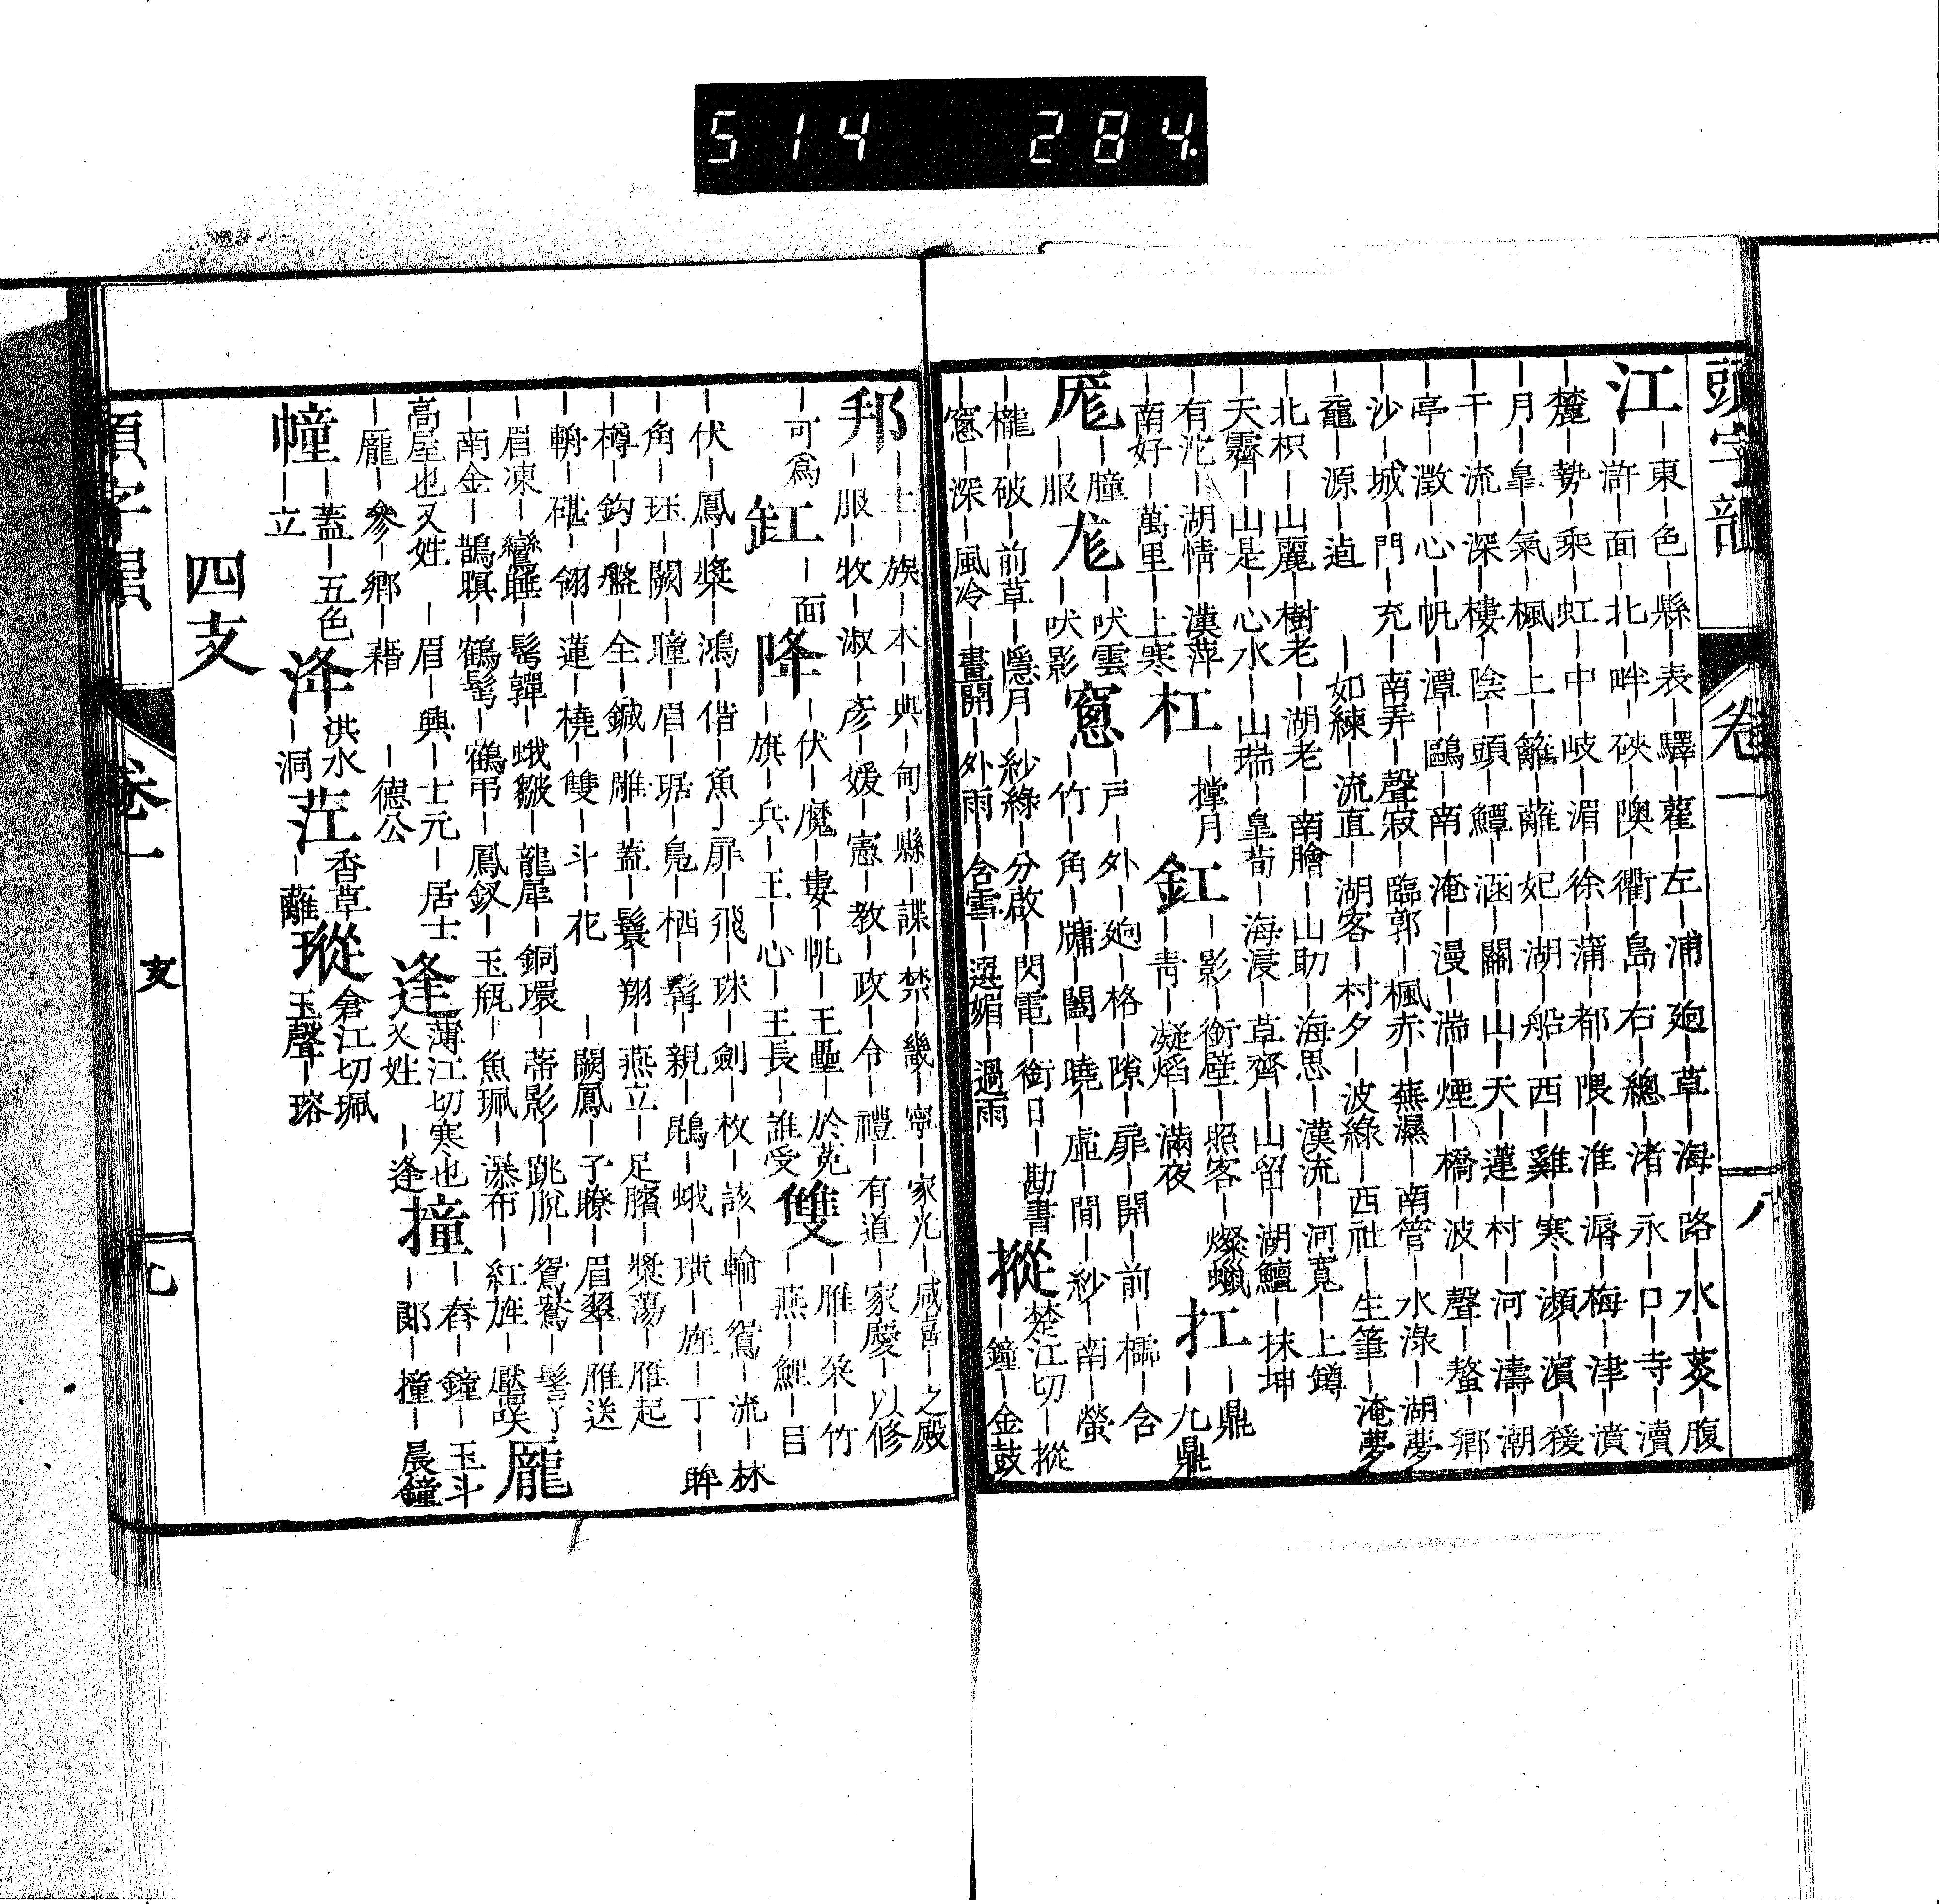 514 284
頭字韻 卷一 八
江
｜東｜色｜縣｜表｜驛｜蘿｜左｜浦｜廻｜草｜海｜路｜水｜葵｜腹
｜滸｜面｜北｜畔｜硤｜隩｜衢｜島｜右｜總｜渚｜永｜口｜寺｜瀆
麓｜勢｜乘｜虹｜中｜岐｜湄｜徐｜蒲｜都｜隈｜淮｜濤｜梅｜津｜濆
｜月｜皐｜氣｜楓｜上｜籬｜蘺｜妃｜湖｜船｜西｜雞｜寒｜瀕｜濵｜
｜干｜流｜深｜樓｜陰｜頭｜鱏｜涵｜關｜山｜天｜蓮｜村｜河｜濤｜潮
｜亭｜澂｜心｜帆｜潭｜鷗｜南｜淹｜漫｜湍｜煙｜橋｜波｜聲｜螯｜鄉
｜沙｜城｜門｜充｜南弄｜聲寂｜臨郭｜楓赤｜蕪濕｜南管｜水淥｜湖夢
｜黿｜源｜逌｜如練｜流直｜湖客｜村夕｜波綠｜西社｜生筆｜淹夢
｜北枳｜山麗｜樹老｜湖老｜南膾｜山助｜海思｜漢流｜河寬｜上鱒
｜天霽｜山是｜心水｜山瑞｜皐荀｜海浸｜草齊｜山留｜湖鱣｜抹坤
｜有沱｜湖情｜漢萍
｜南好｜萬里｜上寒
杠｜撑月
釭｜影｜銜壁｜照客｜燦蠟
｜青｜凝熖｜滿夜
扛｜鼎｜九鼎
厖｜朣｜服
尨｜吠雲｜吠影
窻｜戶｜外｜廻｜格｜隙｜扉｜開｜前｜橘｜含
｜竹｜角｜牗｜闔｜曉｜虛｜閒｜紗｜南｜螢
｜櫳｜破｜前草｜隱月｜紗綠｜分啟｜閃電｜銜日｜勘書
｜窻｜深｜風冷｜晝開｜外雨｜含雪｜選媚｜過雨
摐 楚江切｜摐｜鐘｜金鼓
邦｜士｜族｜本｜典｜甸｜縣｜諜｜禁｜畿｜寧｜家光｜咸喜｜之殿
｜服｜牧｜淑｜彥｜媛｜憲｜教｜政｜令｜禮｜有道｜家慶｜以修
｜可爲
缸｜面
降｜伏｜魔｜婁｜帆｜王壘｜於菟
｜旗｜兵｜王｜心｜王長｜誰受
雙｜雁｜桨｜竹｜燕｜鯉｜目
｜伏｜鳳｜槳｜鴻｜偕｜魚｜扉｜飛｜珠｜劍｜枚｜該｜輸｜鴛｜流｜林
｜角｜珏｜闕｜瞳｜眉｜琚｜鳧｜栖｜鬅｜親｜鵾｜蛾｜璜｜旌｜丁｜眸
｜樽｜鈎｜盤｜全｜鍼｜雕｜葢｜鬟｜翔｜燕立｜足臏｜槳蕩｜雁起
｜輈｜碪｜翎｜蓮｜橈｜雙｜斗｜花｜闕鳳｜子瞭｜眉翠｜雁送
｜眉凍｜鸞睡｜髩嚲｜蛾皺｜龍犀｜銅環｜蒂影｜跳脫｜鴛鴦｜髻丫
｜南金｜鵲瞑｜鶴髩｜鶴弔｜鳳釵｜玉瓶｜魚珮｜瀑布｜紅旌｜靨唉
龐
高屋也又姓｜眉｜興｜士元｜居士
｜龐｜參｜鄉｜藉｜德公
逄 薄江切寒也又姓｜逄
撞｜舂｜鐘｜玉斗｜郎｜撞｜晨鐘
幢｜蓋｜五色｜立
洚 洪水｜洞
茳 香草｜蘺
瑽 倉江切珮玉聲｜瑢
四支
頭字韻 卷一 支 九